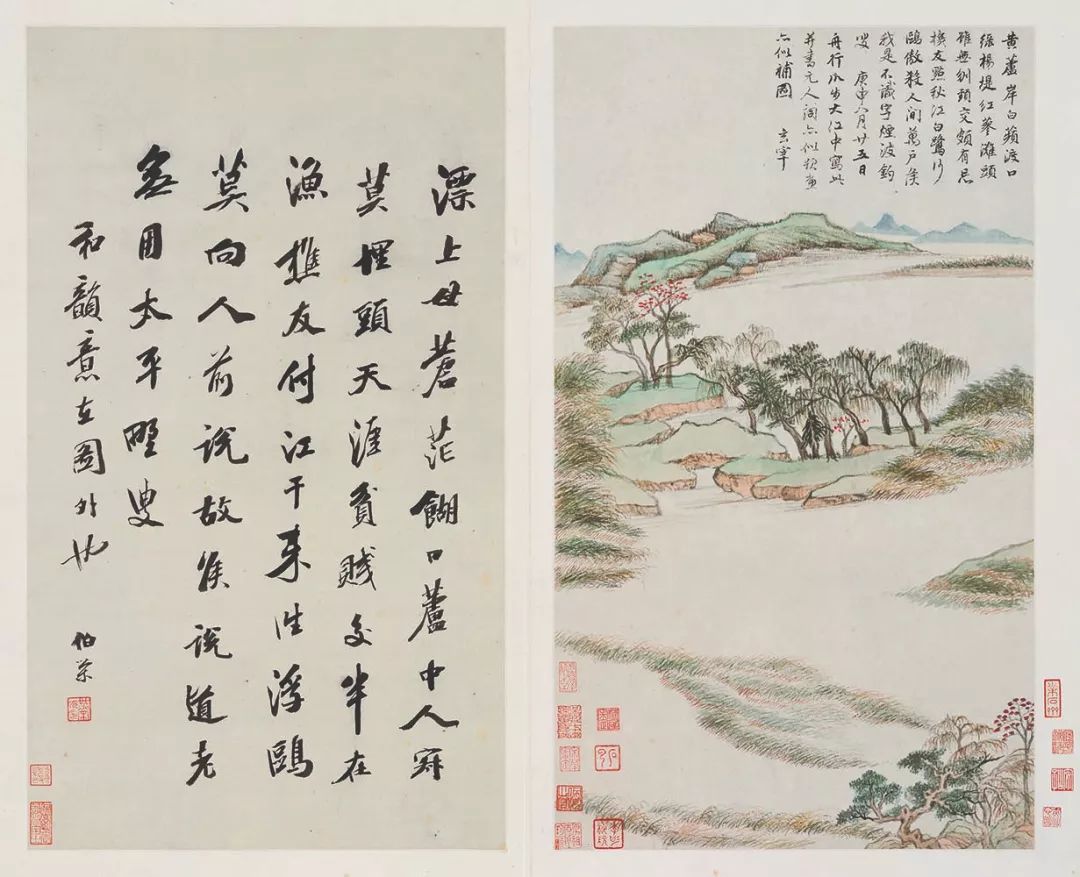 黄蘆岸白蘋渡口
綠楊堤紅蓼灘頭
雖無刎頸交頗有忘
機友點秋江白鷺沙
鷗傲殺人間萬戶侯
我是不識字煙波釣
叟 庚申八月廿五日
舟行瓜步大江中寫此
并書元人詞亦似
補圖 玄宰
漂上母蒼茫餬口蘆中人寂
莫埋頭天涯貧賤交半在
漁樵友付江干來往浮鷗
莫向人前說故侯說道老
無用太平野叟
和韻意在圖外也
伯榮